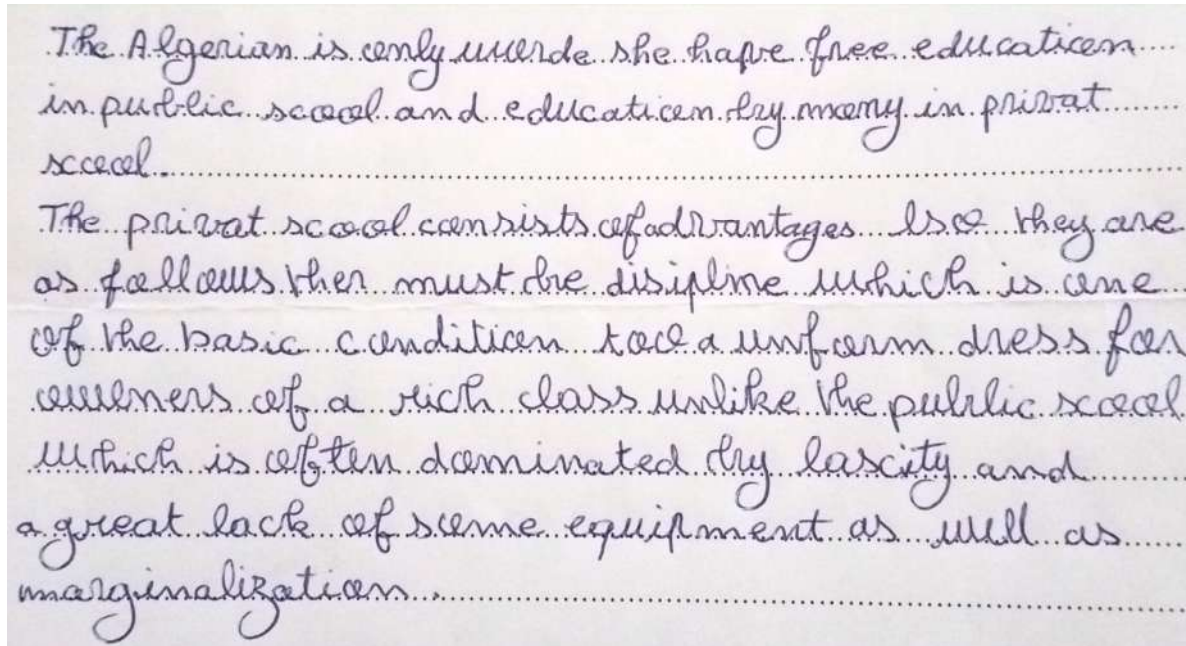 The Algerian is only worde she hapve free education
in public scoool and education by mony in privat
scoool.
The privat scoool consists of advantages lso they are
as follows ther must be disipline which is one
of the basic condition tool a uniform dress for
owlners of a rich class unlike the public scoool
which is often dominated by lascity and
a great lack of some equipment as well as
marginalization.